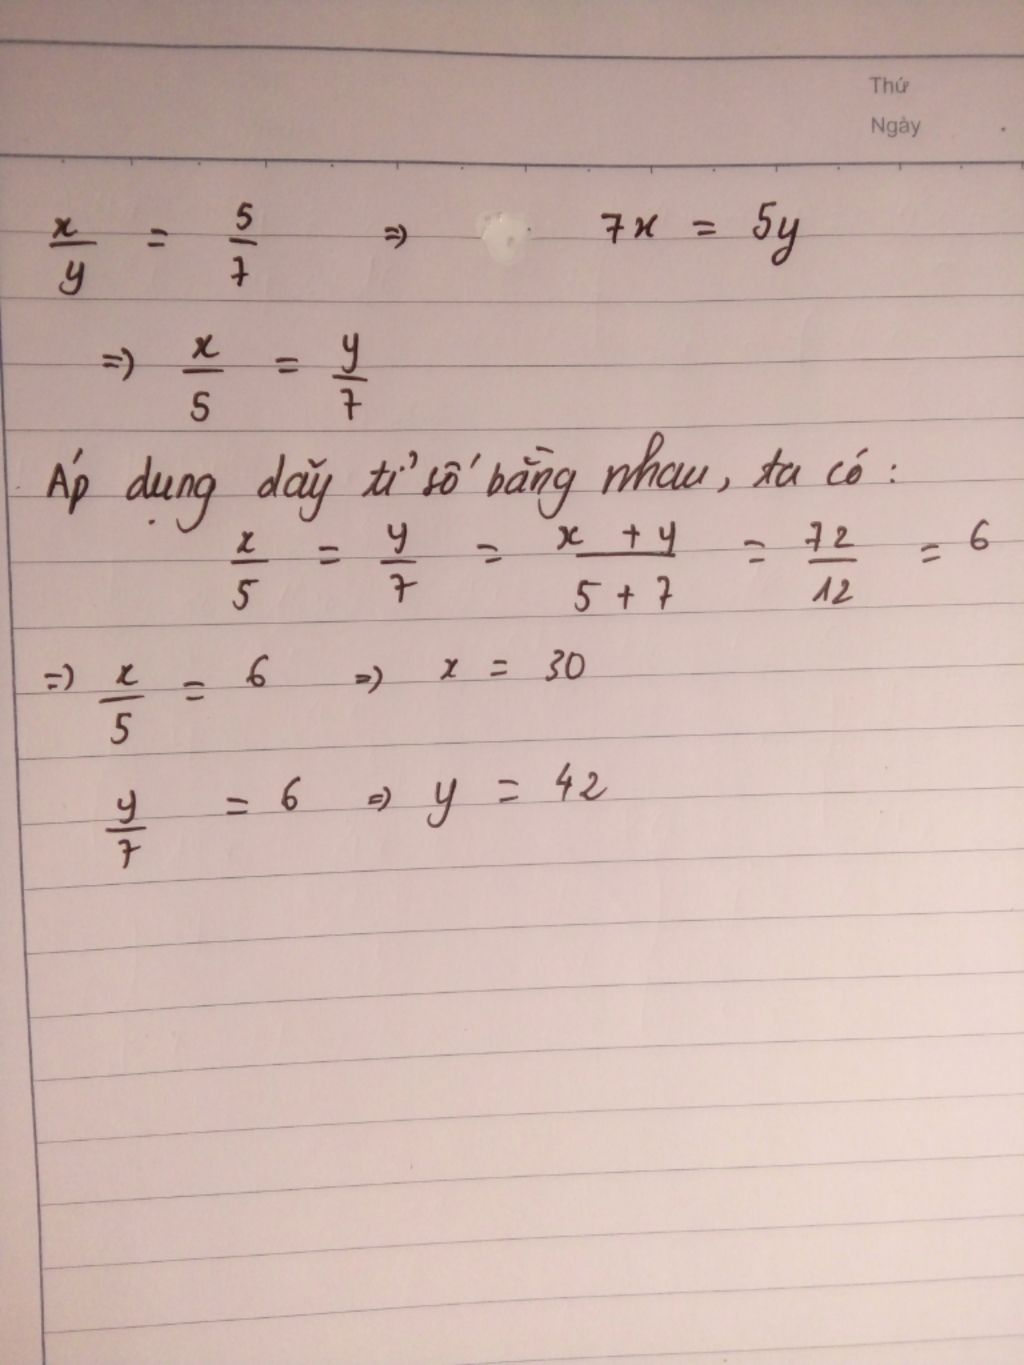 Thứ
Ngày
x/y = 5/7 => 7x = 5y
=> x/5 = y/7
Áp dụng dãy tỉ số bằng nhau, ta có :
x/5 = y/7 = x + y/5 + 7 = 72/12 = 6
=> x/5 = 6 => x = 30
y/7 = 6 => y = 42